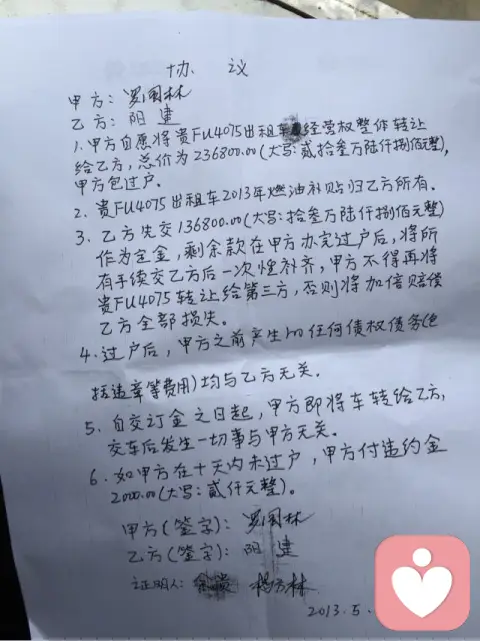 协 议
甲方：罗国林
乙方：阳建
1.甲方自愿将贵FU4075出租车经营权整体转让
给乙方，总价为236800.00(大写:贰拾叁万陆仟捌佰佰元整)，
甲方包过户。
2. 贵FU4075出租车2013年燃油补贴归乙方所有.
3. 乙方先交136800.00(大写:拾叁万陆仟捌佰元整)
作为定金，剩余款在甲方办完过户后，将所
有手续交乙方后一次性补齐，甲方不得再将
贵FU4075转让给第三方，否则将加倍赔偿
乙方全部损失。
4.过户后，甲方之前产生的任何债权债务(包
括违章等费用)均与乙方无关.
5. 自交订金之日起，甲方即将车转给乙方,
交车后发生一切事与甲方无关。
6. 如甲方在十天内未过户，甲方付违约金
2000.00(大写:贰仟元整)。
甲方(签字): 罗国林
乙方(签字): 阳建
证明人: 杨方林
2013.5.